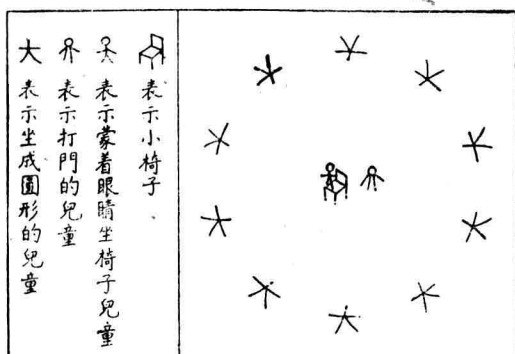 表示小椅子、
表示蒙着眼睛坐椅子兒童
表示打門的兒童
表示坐成圓形的兒童